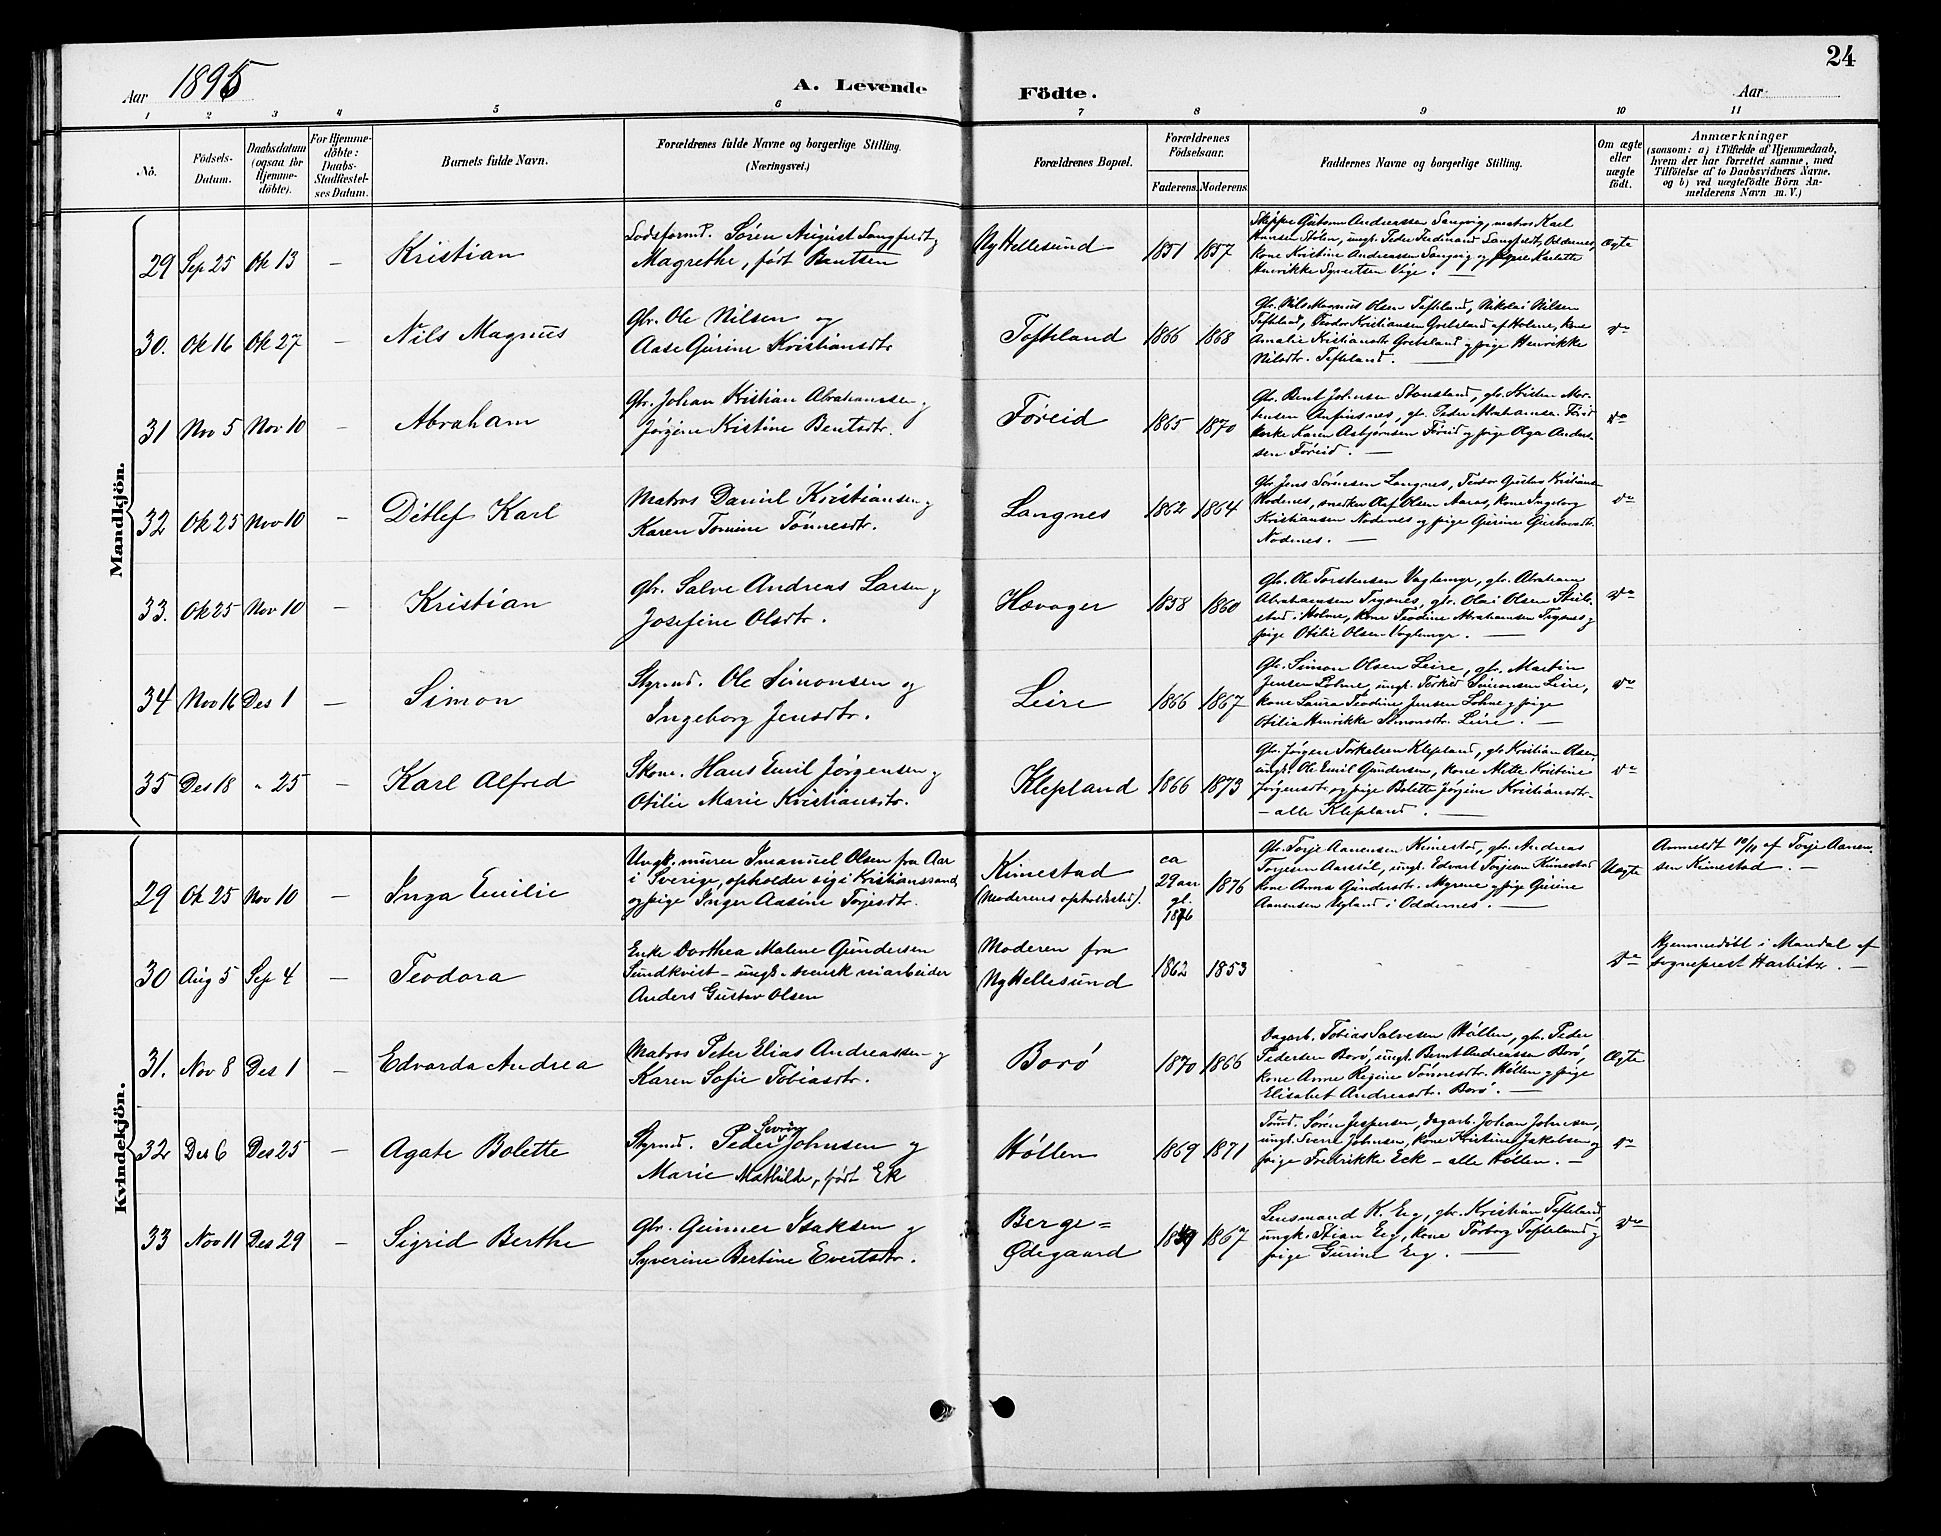 24
Aar 1895
A. Levende Födte.
Aar
1 2 3 4 5 6 7 8 9 10 11
No.
Födsels-
Datum.
Daabsdatum
(ogsaa for
Hjemme-
döbte).
For Hjemme-
döbte:
Daabs-
Stadfæstel-
ses Datum.
Barnets fulde Navn.
Forældrenes fulde Navne og borgerlige Stilling.
(Næringsvei.)
Forældrenes Bopæl.
Forældrenes
Födselsaar.
Faderens. Moderens.
Faddernes Navne og borgerlige Stilling.
Om ægte
eller
uægte
födt.
Anmærkninger
(saasom: a) i Tilfælde af Hjemmedaab,
hvem der har forrettet samme, med
Tilföielse af to Daabsvidners Navne.
og b) ved uægtefödte Börn An-
melderens Navn m. V.)
Mandkjön.
29 Sep 25 Ok 13 — Kristian
Lodsformd. Søren August Langfeldt og
Magrethe, født Bentsen
Ny Hellesund 1851 1857
Andreassen Sangvig, matros Karl
Hansen Stølen, ungk. Peder Ferdinand Langfeldt, Oddernes,
kone Kristine Andreassen Sangvig og pige Karlotte
Henrikke Syvertsen Vige. —
Ægte
30. Ok 16 Ok 27 — Nils Magnus
Gbr. Ole Nilsen og
Aase Gurine Kristiansdtr
Tofteland 1866 1868
Gbr. Nils Magnus Olsen Tofteland, Nikolai Nilsen
Tofteland, Teodor Kristiansen Grebsland af Holme, kone
Amalie Kristiansdtr Grebsland og pige Henrikke
Nilsdtr. Tofteland.
do
31 Nov 5 Nov 10 — Abraham
Gbr. Johan Kristian Abrahamssen og
Jørgine Kristine Bentsdtr.
Føreid 1865 1870
Gbr. Bent Johnsen Stensland, gbr. Kristen Mor-
tensen Anfinsnes, gbr. Peder Abrahamsen Føreid
kone Karen Asbjørnsen Føreid og pige Olga Anders-
sen Føreid. —
do
32 Ok 25 Nov 10 — Ditlef Karl
Matros Daniel Kristiansen og
Karen Tomine Tønnesdtr.
Langnes 1862 1864
Gbr. Jens Sørensen Langnes, Teodor Gustav Kristians
Nodenes, snedker Olaf Olsen Aaros, kone Ingeborg
Kristiansen Nodenes og pige Gurine Gustavsdtr.
Nodenes. —
do
33. Ok 25 Nov 10 — Kristian
Gbr. Salve Andreas Larsen og
Josefine Olsdtr.
Hævager 1858 1860
Gbr. Ole Torstensen Vaglemyr, gbr. Abraham
Abrahamsen Trysnes, gbr. Olai Olsen
stad i Holme, kone Teodine Abrahamsen Trysnes og
pige Otilie Olsen Vaglemyr. —
do
34 Nov 16 Des 1 — Simon
Styrmd. Ole Simonsen og
Ingeborg Jensdtr.
Leire 1866 1867
Gb. Simon Olsen Leire, gbr. Martin
Jensen Lohne, ungk. Terkild Simonsen Leire,
kone Laura Teodine Jensen Lohne og pige
Otilia Henrikke Simonsdtr. Leire. —
do
35 Des 18 " 25 — Karl Alfred
Skom. Hans Emil Jørgensen og
Otilie Marie Kristiansdtr.
Klepland 1866 1873
Gbr. Jørgen Torkelsen Klepland, gb. Kristian Olsen,
ungk. Ole Emil Gundersen, kone Mette Kristine
Jørgensdtr. og pige Bolette Jørgine Kristiansdtr.
— alle Klepland. —
do
Kvindekjön.
29 Ok 25 Nov 10 — Inga Emilie
Ungk. murer Imanuel Olsen fra Aar
i Sverige, opholder sig i Kristianssand,
og pige Inger Aasine Torjesdtr.
Kimestad
(Moderens opholdssted).
ca
29 aar
gl.
1876
Gbr. Torje Aanensen Kimestad, gbr. Andreas
Torjesen Aarstøl, ungk. Edvart Torjesen Kimestad
kone Anna Gundersdtr. Myrene og pige Gurine
Aanensen Vegland i Oddernes. —
Uægte
Anmeldt 10/11 af Torje Aanen-
sen Kimestad. —
30 Aug 5 Sep 4 — Teodora
Enke Dorthea Malene Gundersen
Sundkvist — ungk. svensk
Anders Gustav Olsen
Moderen fra
Ny Hellesund 1862 1853
do
Hjemmedøbt i Mandal af
sogneprest Harbitz. —
31. Nov 8 Des 1 — Edvarda Andrea
Matros Peter Elias Andreassen og
Karen Sofie Tobiasdtr.
Borø 1870 1866
Dagarb. Tobias Salvesen Høllen, gbr. Peder
Pedersen Borø, ungk. Bernt Andreassen Borø,
kone Anne Regine Tønnesdtr. Høllen og pige
Elisabet Andreasdtr. Borø. —
Ægte
32 Des 6 Des 25 — Agate Bolette
Styrmd. Peder Johnsen og
Marie Mathilde, født Ek
Høllen 1869 1871
Tømd. Søren Jespersen, dagarb. Johan Johnsen,
ungk. Johnsen, kone Kristine Jakobsen og
pige Fredrikke Eck — alle Høllen. —
do
33 Nov 11 Des 29 — Sigrid Berthe
Gbr. Gunner Isaksen og
Syverine Bertine Evertsdtr.
Berge=
Ødegaard 1867
Lensmand K. Eeg, gbr. Kristian Tofteland,
ungk. Stian Eeg, kone Torborg Tofteland og
pige Gurine Eeg. —
do